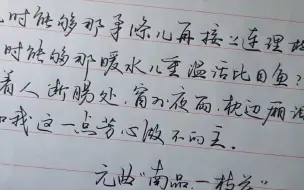 时能够那柔条儿再接上连理
时能够那暖水儿重温活比目鱼
着人断肠处，窗外夜雨，枕边厢
和我这一点芳心做不的主．
元曲“南吕．一枝花”